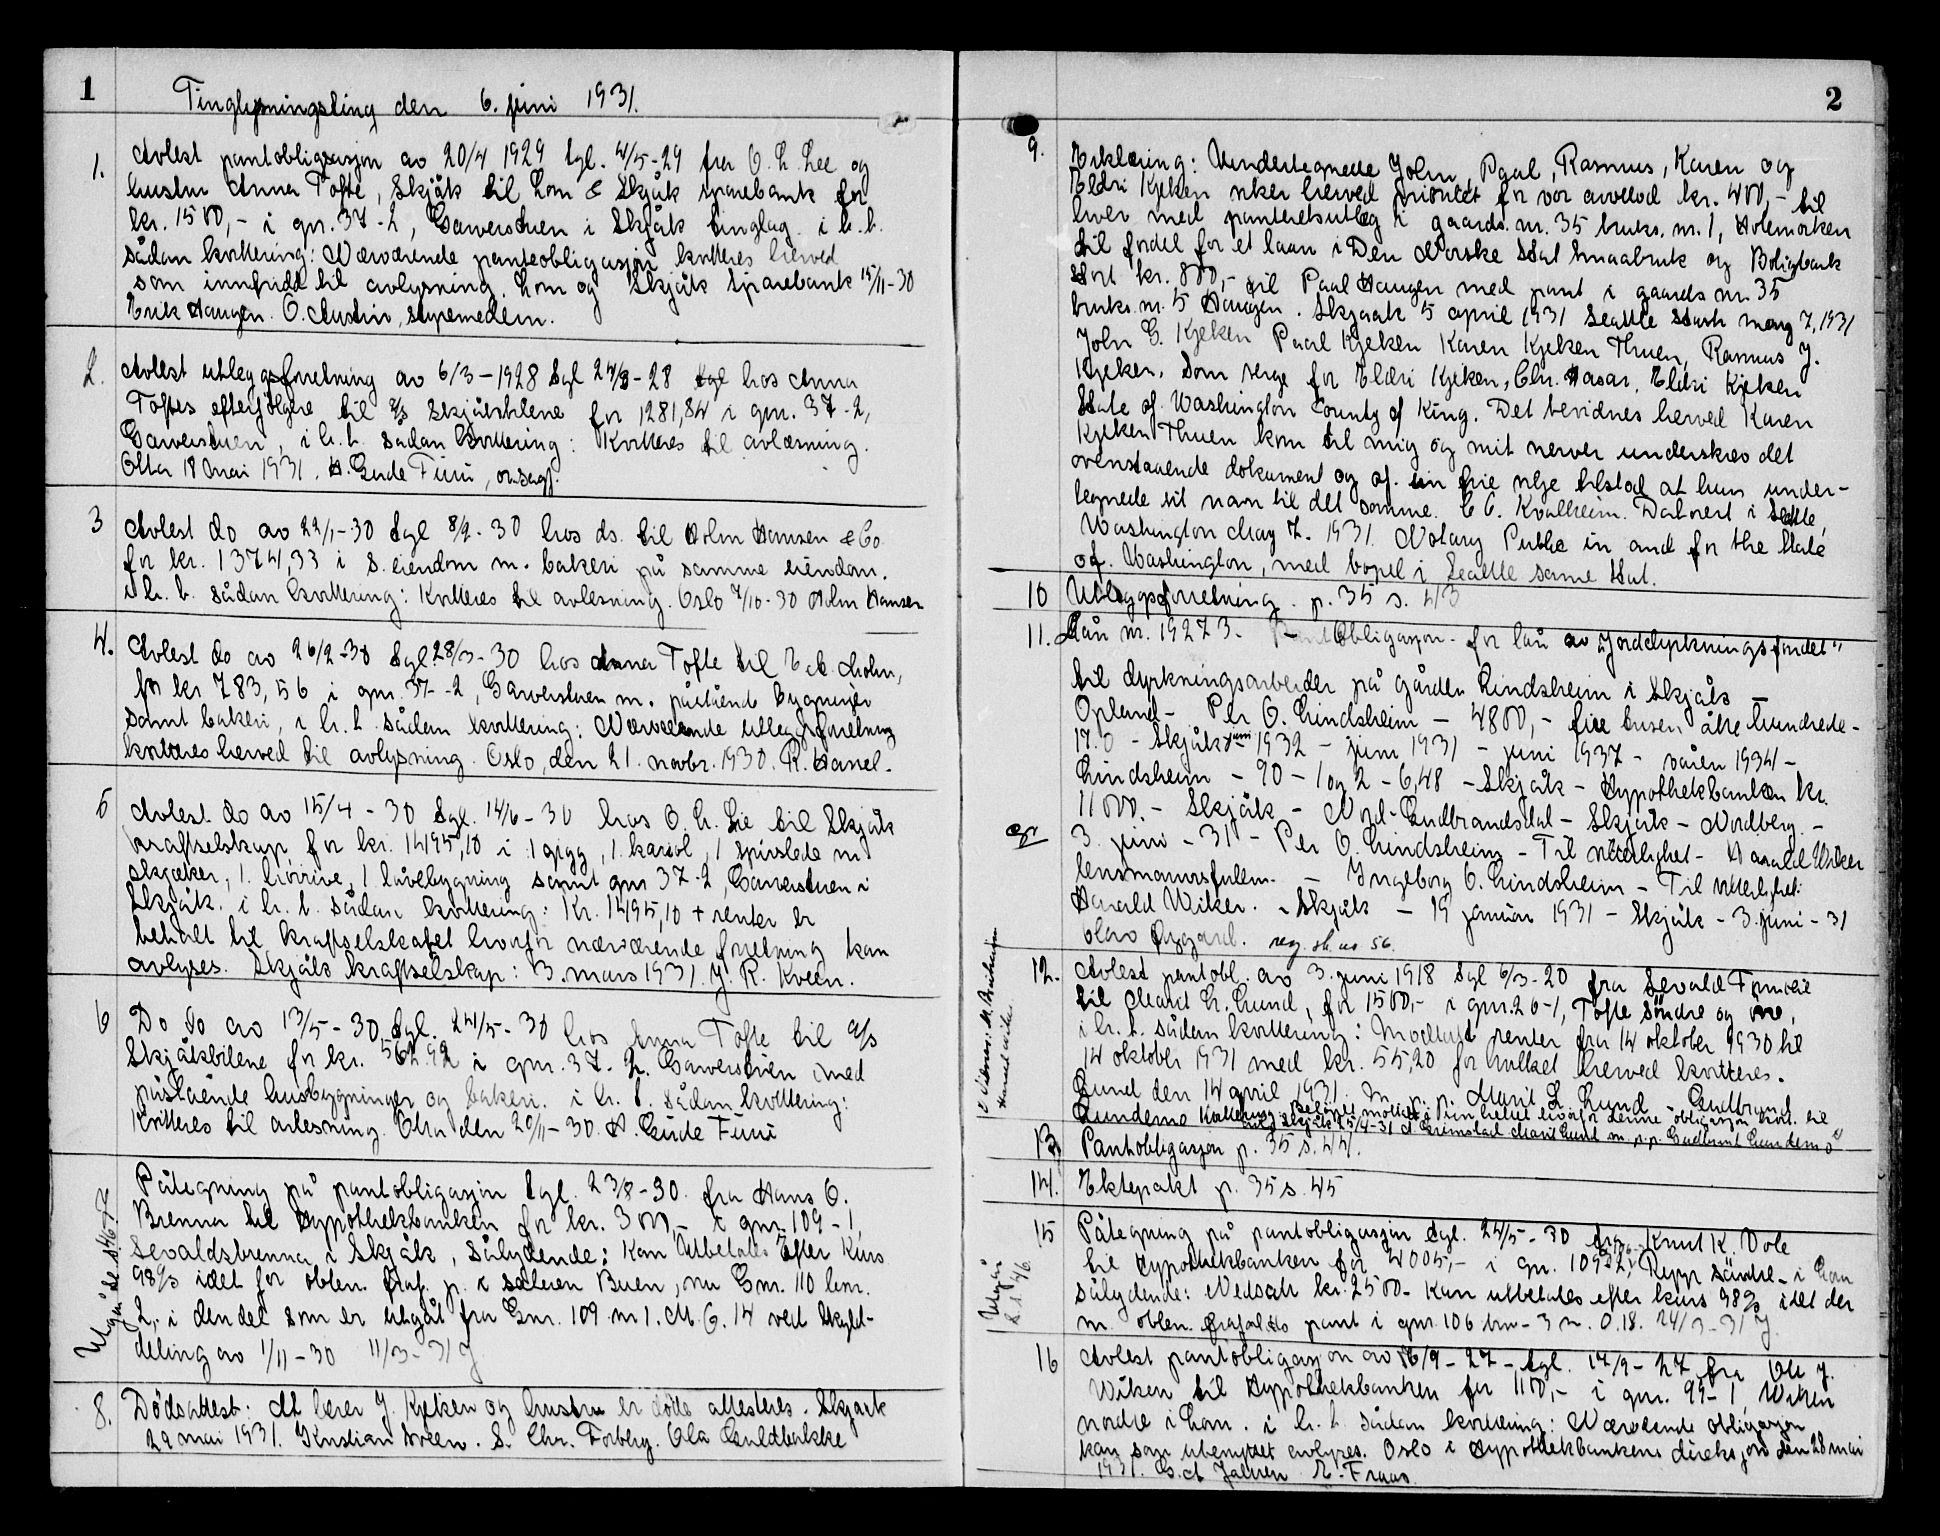 1
Tinglysningsting den 6. juni 1931.
1. Avlest pantobligasjon av 20/4 1929 tgl. 4/5-29 fra O. H. Lee og
hustru Anna Tofte, Skjåk til Lom & Skjåk sparebank for
kr. 1500,- i gnr. 37-2, Garverstuen i Skjåk tinglag. i h. h.
sådan kvittering: Nærværende panteobligasjon kvitteres herved
som innfridd til avlysning. Lom og Skjåk Sparebank 15/11-30
Erik Haugen. O. Austin, styremedlem.
2. Avlest utleggsforretning av 6/3-1928 tgl 24/3-28 hos Anna
Toftes efterfølgere til A/S Skjåkbilene for 1281,84 i gnr. 37-2,
Garverstuen, i h. h. sådan kvittering: Kvitteres til avlesning.
Otta 18 mai 1931. H. Gude Furu, o.r.sagf.
3 Avlest do av 22/1-30 tgl 8/2-30 hos ds. til Holm Hansen & Co.
for kr. 1374,33 i s. eiendom m. bakeri på samme eiendom.
i h. h. sådan kvittering: Kvitteres til avlesning. Oslo 7/10-30 Holm Hansen
4. Avlest do av 26/2-30 tgl 28/3-30 hos Anna Tofte til E. A. Holm,
for kr 783,56 i gnr. 37-2, Garverstuen m. påstående bygninger
samt bakeri, i h. h. sådan kvittering: Nærværende utleggsforretning
kvitteres herved til avlysning. Oslo, den 21. novbr. 1930. R. Hansel.
5 Avlest do av 15/4-30 tgl. 14/6-30 hos O. H. Lie til Skjåk
kraftselskap for kr. 1495,10 i 1 gigg, 1 kariol, 1 spisslede m
skjæker, 1 høirive, 1 låvebygning samt gnr 37-2, Garverstuen i
Skjåk. i h. h. sådan kvittering: Kr. 1495,10 + renter er
betalt til kraftselskapet hvorfor nærværende forretning kan
avlyses. Skjåk kraftselskap: 3. mars 1931. J. R. Kveen.
6 Do do av 13/5-30 tgl. 24/5-30 hos Anna Tofte til A/S
Skjåkbilene for kr. 562.92 i gnr. 37-2. Garverstuen med
påstående husbygninger og bakeri. i h. h. sådan kvittering:
Kvitteres til avlesning. Otta den 20/11-30. H. Gude Furu
7 Påtegning på pantobligasjon tgl. 23/8-30. fra Hans O.
Brenna til Hypothekbanken for kr. 3000,- i gnr. 109-1,
Sevaldsbrenna i Skjåk, sålydende: Kan utbetales efter kurs
98% idet for oblen. fraf. p. i sæteren Buen, nu Gnr. 110 brnr.
2, i den del som er utgåt fra Gnr. 109 nr 1. M. 6. 14 ved skyld-
deling av 1/11-30 11/3-31 J
8. Dødsattest: At Peder J. Kjeken og hustru er døde attesteres. Skjaak
29 mai 1931. Kristian Steen. S. Chr. Forberg. Ola Guldbakke
2
9. Erklæring: Undertegnede John, Paal, Rasmus, Karen og
Eldri Kjeken viker herved prioritet for vor arvelod kr. 400,- til
hver med panteheftelse i gaards.nr. 35 bruks.nr. 1, Holemorken
til fordel for et laan i Den Norske Stat Smaabruk og Boligbank
stort kr. 800,- til Paal Haugen med pant i gaards nr. 35
bruks.nr. 5 Haugen. Skjaak 5 april 1931 Seattle Wash may 7, 1931
John G. Kjeken Paal Kjeken Karen Kjeken Thuen, Rasmus J.
Kjeken. Som verge for Eldri Kjeken, Chr. Aasar. Eldri Kjeken
State of Washington County of King. Det bevidnes herved Karen
Kjeken Thuen kom til mig og mit nerver underskrev det
ovenstaaende dokument og af sin frie vilje tilstod at hun under-
tegnede sit navn til det samme. C. C. Kvalheim. Datoert i Seattle,
Washington May 7. 1931. Notary Public in and for the State
of Washington, med bopel i Seattle same Stat.
10 Utleggsforretning. p. 35 s. 43
11. Lån nr. 19273. Pantobligasjon for lån av "Jorddyrkningsfondet"
til dyrkningsarbeider på gården Lindsheim i Skjåk -
Opland - Per O. Lindsheim - 4800,- fire tusen åtte hundrede -
17.0 - Skjåk juni 1932 - juni 1931 - juni 1937 - våren 1934 -
Lindsheim - 90 - 1 og 2 - 6,48 - Skjåk - Hypothekbanken kr.
11000.- Skjåk - Nord-Gudbrandsdal - Skjåk - Nordberg. -
3. juni - 31 - Per O. Lindsheim - Til vitterlighet - Harald Wiker
lensmannsfullm. - Ingeborg O. Lindsheim - Til vitterlighet:
Harald Wiker. - Skjåk - 19 januar 1931 - Skjåk - 3. juni - 31
Olav Øygard.
12. Avlest pantobl. av 3. juni 1918 tgl 6/3-20 fra Sevald
til Marit L. Lund, for 1500,- i gnr. 26-1, Tofte søndre og øvre,
i h. h. sådan kvittering: Mottatt renter fra 14 oktober 1930 til
14 oktober 1931 med kr. 55,20 for hvilket herved kvitteres.
Lund den 14 april 1931. m. p. p. Marit L. Lund - Gudbrand
Lundemo Kvittering: Beløpet mottatt i sin helhet hvorfor denne obligasjon kvit. til
avl. Skjåk 25/4-31 A Grimstad Marit Lund m. p. p. Gudbrand Lundemo
13 Pantobligasjon p. 35 s. 44.
14. Ektepakt p. 35 s. 45
15 Påtegning på pantobligasjon tgl. 24/5-30 fra Knut K. Vole
til Hypothekbanken for 4005,- i gnr. 109-2, Repp søndre - i Lom
sålydende: Nedsatt kr. 2500.- Kan utbetales efter kurs 98% idet der
m. oblen. frafaldes pant i gnr. 106 brnr. 3 m. 0.18. 24/3-31 J.
16 Avlest pantobligasjon av 16/9-27 - tgl. 17/9-27 fra Ole J.
Wiken til Hypothekbanken for 1100,- i gnr. 99-1, Wiken
nordre i Lom. i h. h. sådan kvittering: Nærværende obligasjon
kan som ubenyttet avlyses. Oslo i Hypothekbankens direksjon den 28 mai
1931. E. Fraas.